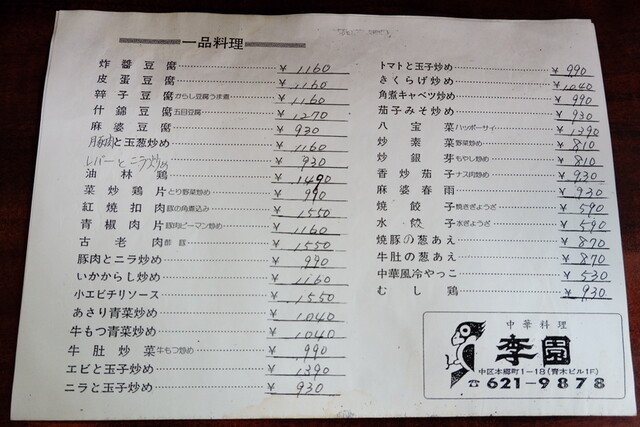 一品料理
炸醬豆腐 ¥1160
皮蛋豆腐 ¥1160
辣子豆腐からし豆腐うま煮 ¥1160
什錦豆腐五目豆腐 ¥1270
麻婆豆腐 ¥930
豚肉と玉葱炒め ¥1160
レバーとニラ炒め ¥930
油林鶏 ¥1490
菜炒鶏片とり野菜炒め ¥990
紅焼扣肉豚の角煮込み ¥1550
青椒肉片豚肉ピーマン炒め ¥1160
古老肉酢豚 ¥1550
豚肉とニラ炒め ¥990
いかからし炒め ¥1160
小エビチリソース ¥1550
あさり青菜炒め ¥1040
牛もつ青菜炒め ¥1040
牛肚炒菜牛もつ炒め ¥990
エビと玉子炒め ¥1390
ニラと玉子炒め ¥930
トマトと玉子炒め ¥990
きくらげ炒め ¥1040
角煮キャベツ炒め ¥990
茄子みそ炒め ¥930
八宝菜ハッポーサイ ¥1390
炒素菜野菜炒め ¥810
炒銀芽もやし炒め ¥810
香炒茄子ナス肉炒め ¥930
麻婆春雨 ¥930
焼餃子焼きぎょうざ ¥590
水餃子水ぎょうざ ¥590
焼豚の葱あえ ¥870
牛肚の葱あえ ¥870
中華風冷やっこ ¥530
むし鶏 ¥930
中華料理
李園
中区本郷町1-18(青木ビル1F)
☎621-9878